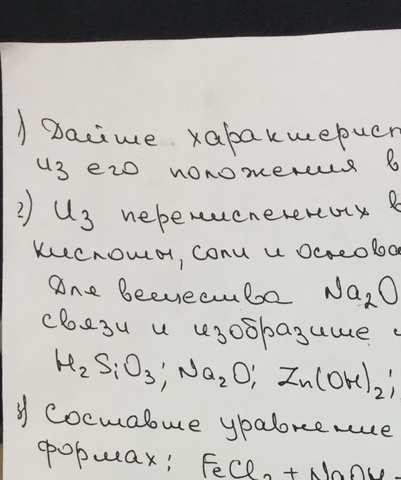 1) Дайте характерист
из его положения в
2) Из перечисленных в
кислоты, соли и основа
Для вещества Na₂O
связи и изобразите
H₂SiO₃; Na₂O; Zn(OH)₂;
3) Составьте уравнение
формах: FeCl₂ + NaOH